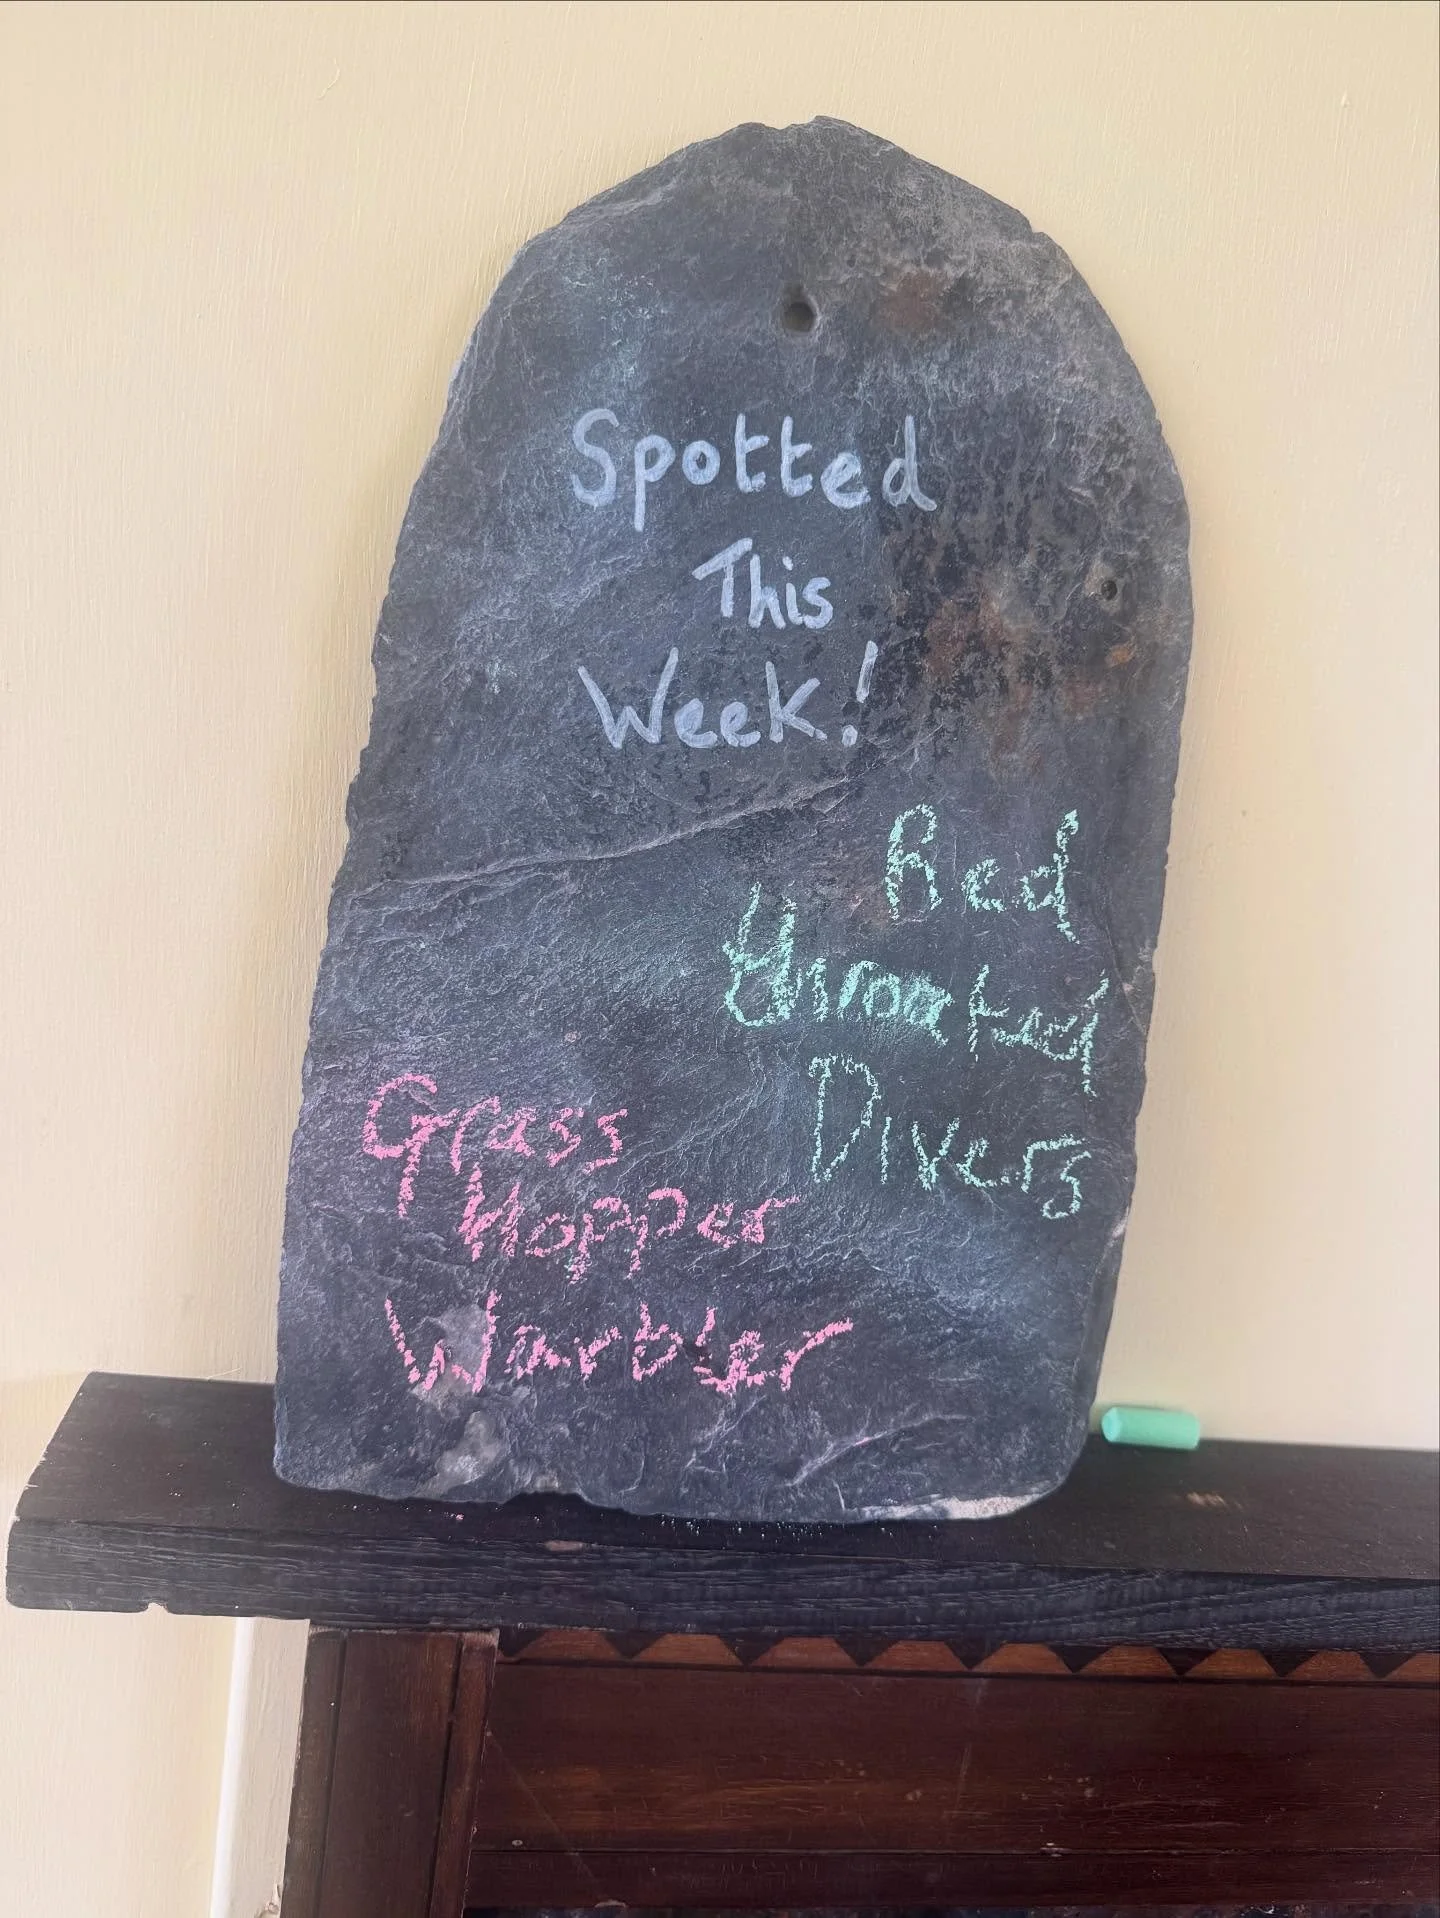 Spotted
This
Week!
Red
throated
Divers
Grass
Hopper
Warbler